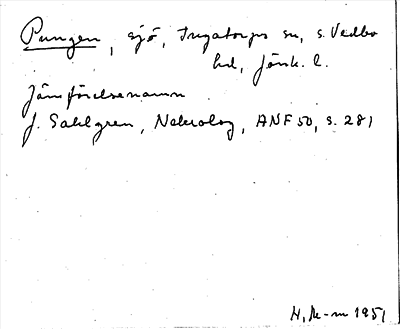 Pungen, sjö, Ingatorps sn, s. Vedbo
hd, Jönk. l.
Jämförelsenamn
J. Sahlgren, Nekrolog, ANF 50, s. 281
H. M-m 1951